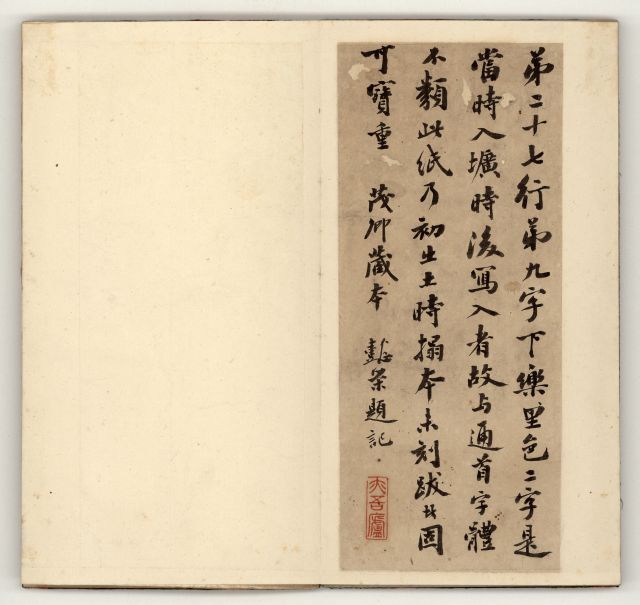 弟二十七行弟九字下樂二字是
當時入壙時後寫入者故与通首字體
不類此紙乃初出土時搨本未刻跋固
可寶重 茂卿藏本 懿榮題記